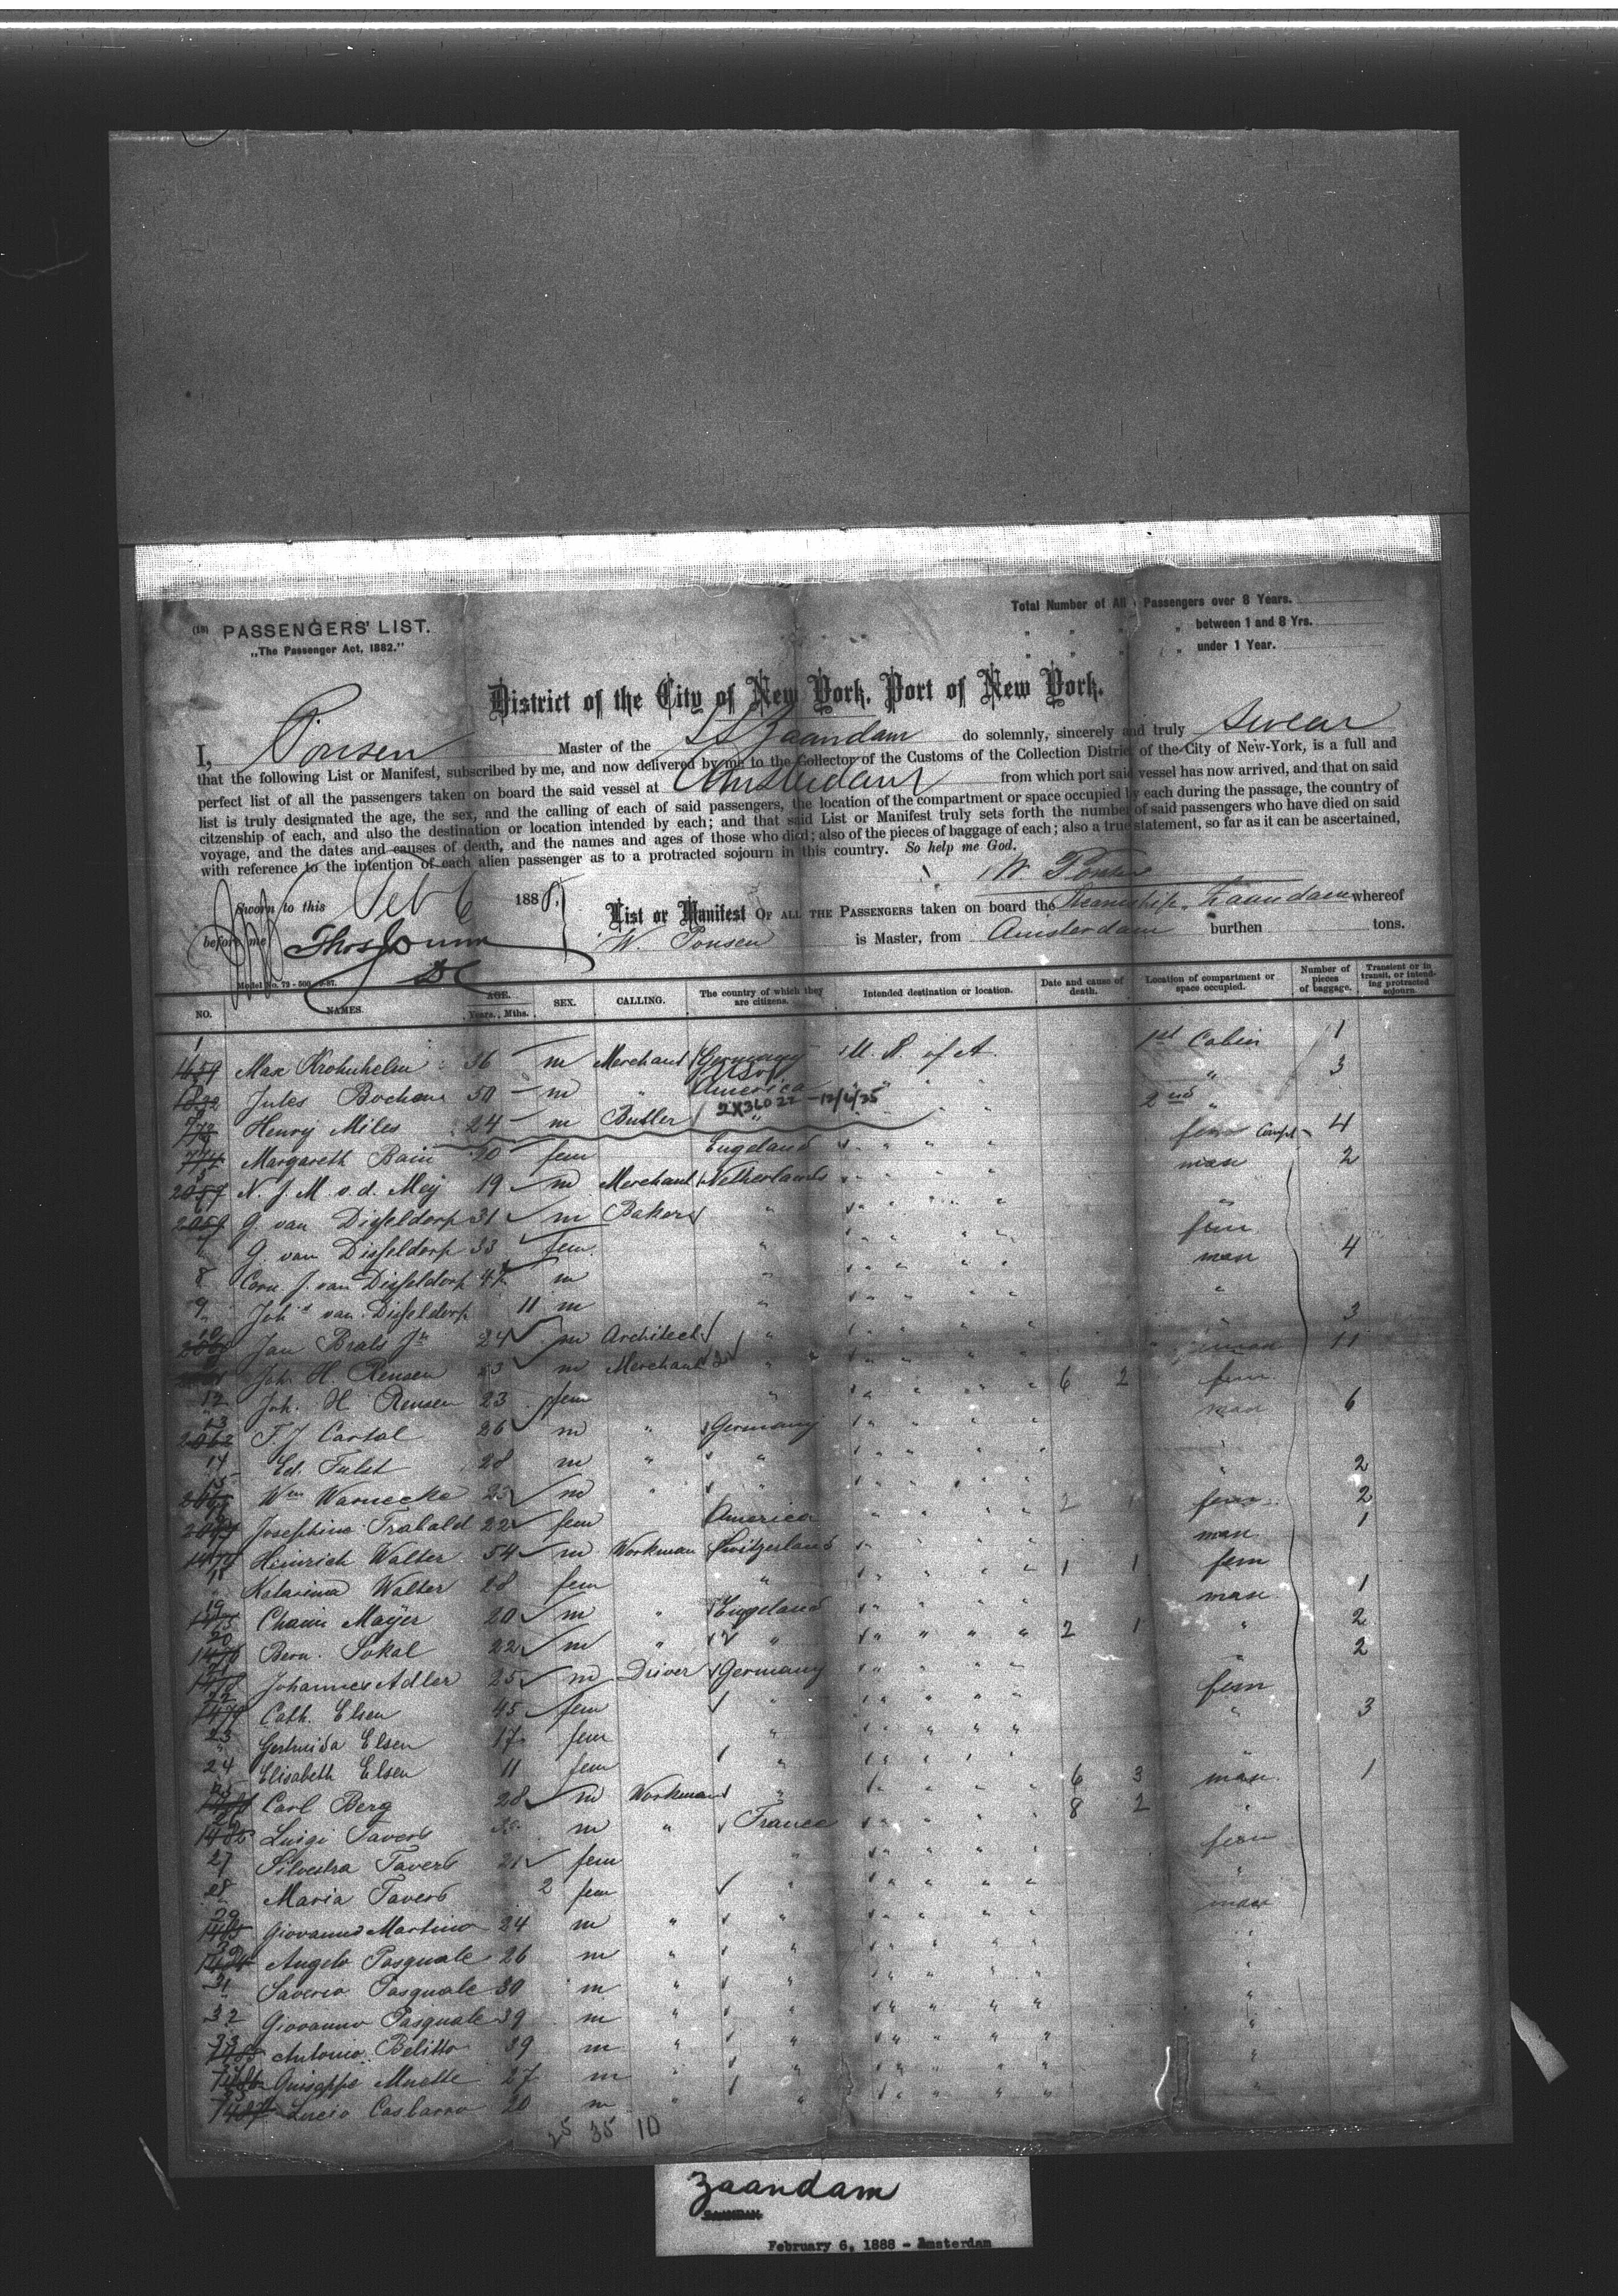 (18) PASSENGERS' LIST.
„The Passenger Act, 1882."
Total Number of All Passengers over 8 Years.
" " " " between 1 and 8 Yrs.
" " " " under 1 Year.
District of the City of New York, Port of New York.
I, Ponsen Master of the SS Zaandam do solemnly, sincerely and truly swear
that the following List or Manifest, subscribed by me, and now delivered by me to the Collector of the Customs of the Collection District of the City of New-York, is a full and
perfect list of all the passengers taken on board the said vessel at Amsterdam from which port said vessel has now arrived, and that on said
list is truly designated the age, the sex, and the calling of each of said passengers, the location of the compartment or space occupied by each during the passage, the country of
citzenship of each, and also the destination or location intended by each; and that said List or Manifest truly sets forth the number of said passengers who have died on said
voyage, and the dates and causes of death, and the names and ages of those who died; also of the pieces of baggage of each; also a true statement, so far as it can be ascertained,
with reference to the intention of each alien passenger as to a protracted sojourn in this country. So help me God.
W Ponsen
Sworn to this Feb 6 1888.
before me Thos Dunn
DC
List or Manifest OF ALL THE PASSENGERS taken on board the Steamship Zaandam whereof
W. Ponsen is Master, from Amsterdam burthen tons.
Model No. 79 - 500, 9-87.
NO. NAMES. AGE. Years. Mths. SEX. CALLING. The country of which they are citizens. Intended destination or location. Date and cause of death. Location of compartment or space occupied. Number of pieces of baggage. Transient or in transit, or intending protracted sojourn.
1 1659 Max Krohnhelm 36 m Merchant Germany U. S. of A. 1st Cabin 1
Jules Bocham 50 m " USof America " " " " " 3
2X36022 - 12/6/35
Henry Miles 24 m Butler " " " " 2nd "
774 Margareth Bain 20 fem England " " " " fem Compt 4
2057 N. J. M. v. d. Mey 19 m Merchant Netherlands " " " " man 2
2059 G. van Disseldorp 31 m Baker " " " " " "
7 G. van Disseldorp 33 fem. " " " " " fem
8 Corn. J. van Disseldorp 4 m " " " " " man 4
9 Joh's van Disseldorp 11 m " " " " " "
10 Jan Brals Jr 24 m Architect " " " " " " 3
Joh. H. Rensen 23 m Merchant " " " " " man 11
12 Joh. H. Rensen 23 fem " " " " " 6 2 fem
13 2062 F. J. Cartal 26 m " Germany " " " " man 6
14 Ed. Tulst 28 m " " " " " " "
15 Wm Warnecke 23 m " " " " " " " 2
Josephina Trabald 22 fem America " " " " 2 1 fem 2
Heinrich Walter 54 m Workman Switzerland " " " " man 1
18 Katarina Walter 28 fem " " " " " 1 1 fem
19 Chaim Mayer 20 m " England " " " " man 1
20 1476 Bern. Sokal 22 m " " " " " " 2 1 " 2
21 1478 Johannes Adler 25 m Driver Germany " " " " " 2
22 1479 Cath. Elsen 45 fem " " " " " fem
23 Gertruida Elsen 17 fem " " " " " " 3
24 Elisabeth Elsen 11 fem " " " " " "
25 Carl Berg 28 m Workman " " " " " 6 3 man 1
26 1482 Luigi Taverb m " France " " " " 8 2 "
27 Silvestra Taverb 21 fem " " " " " fem
28 Maria Taverb 2 fem " " " " " "
29 1483 Giovanni Martino 24 m " " " " " " man
30 1484 Angelo Pasquale 26 m " " " " " " "
31 Saverio Pasquale 30 m " " " " " " "
32 Giovanno Pasquale 39 m " " " " " " "
33 1485 Antonio Belitto 39 m " " " " " " "
34 1486 Guiseppe Muette 27 m " " " " " " "
35 1487 Lucio Casbarro 20 m " " " " " " "
25 35 10
Zaandam
February 6, 1888 - Amsterdam